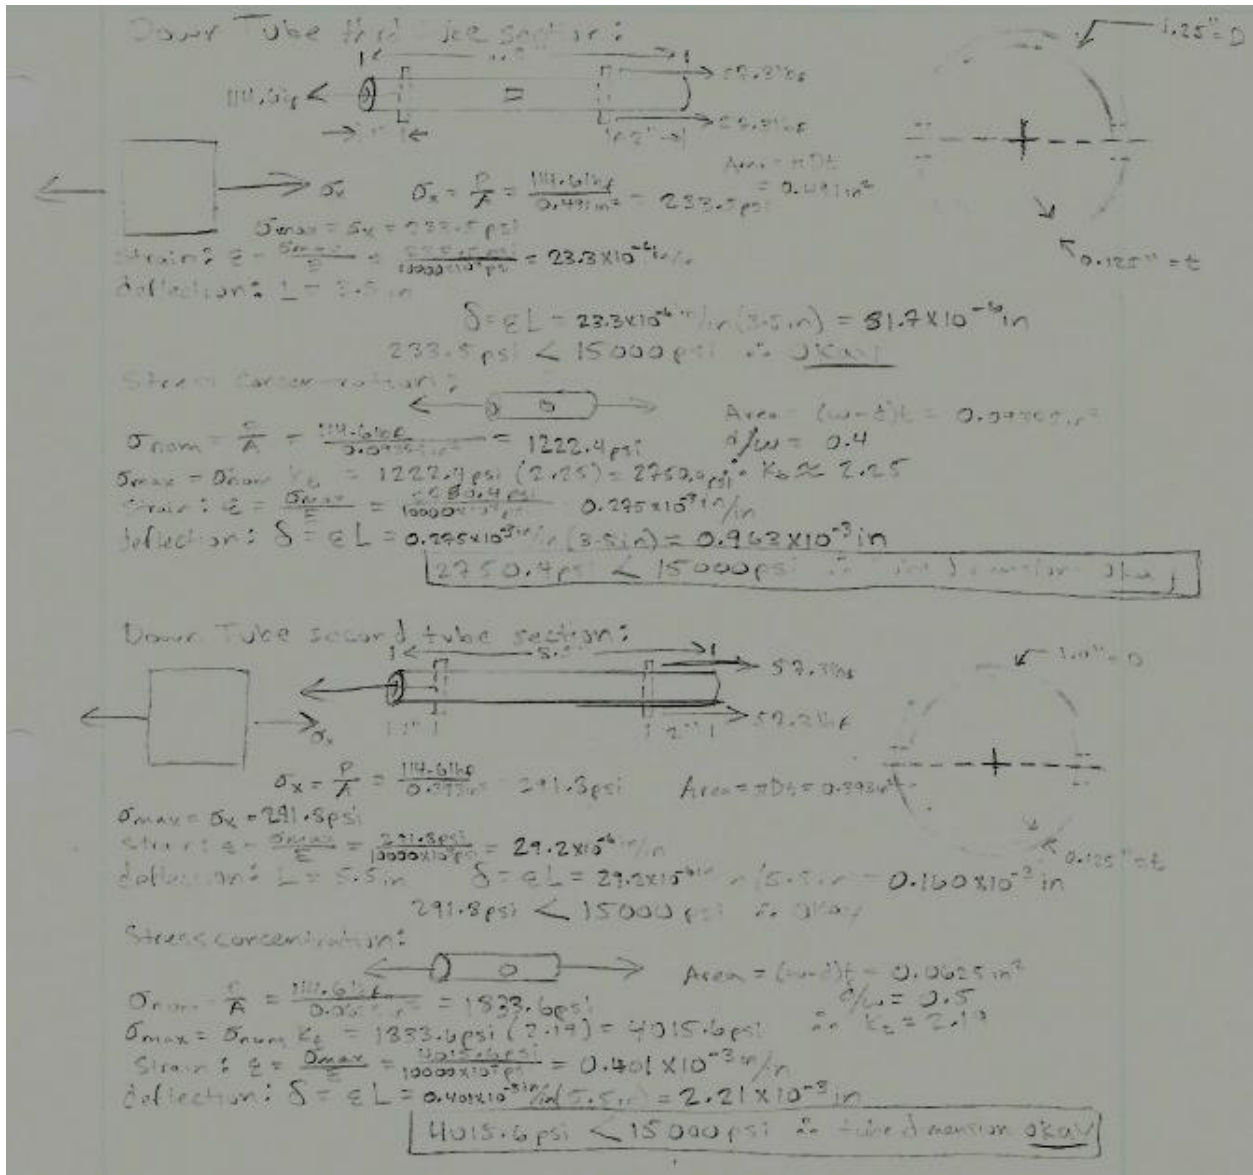 Down Tube third tube section:
1.25" = D
57.3lbf
114.6lbf
57.3lbf
Area = πDt
= 0.491in²
σx
σx = P/A = 114.6lbf/0.491in² = 233.5psi
σmax = σx = 233.5psi
0.125" = t
strain: ε = σmax/E = 233.5psi/10000x10³psi = 23.3x10⁻⁶in/in
deflection: L = 3.5in
δ = εL = 23.3x10⁻⁶in/in(3.5in) = 81.7x10⁻⁶in
233.5psi < 15000psi ∴ okay
Stress concentration:
Area = (w-d)t =
d/w = 0.4
σnom = P/A = 114.6lbf/ = 1222.4psi
σmax = σnom Kt = 1222.4psi (2.25) = 2750.4psi ∴ Kt ≈ 2.25
strain: ε = σmax/E = 0.275x10⁻³in/in
deflection: δ = εL = 0.275x10⁻³in/in(3.5in) = 0.963x10⁻³in
2750.4psi < 15000psi ∴ tube dimension okay
Down Tube second tube section:
1.0" = D
57.3lbf
57.3lbf
1"
2"
σx
σx = P/A = 114.6lbf/0.393in² = 291.8psi
Area = πDt = 0.393in²
σmax = σx = 291.8psi
strain: ε = σmax/E = 291.8psi/10000x10³psi = 29.2x10⁻⁶in/in
0.125" = t
deflection: L = 5.5in δ = εL = 29.2x10⁻⁶in/in(5.5in) = 0.160x10⁻³in
291.8psi < 15000psi ∴ okay
Stress concentration:
Area = (w-d)t = 0.0625in²
d/w = 0.5
σnom = P/A = 114.6lbf/ = 1833.6psi
∴ Kt = 2.19
σmax = σnom Kt = 1833.6psi (2.19) = 4015.6psi
strain: ε = σmax/E = 4015.6psi/10000x10³psi = 0.401x10⁻³in/in
deflection: δ = εL = 0.401x10⁻³in/in(5.5in) = 2.21x10⁻³in
4015.6psi < 15000psi ∴ tube dimension okay